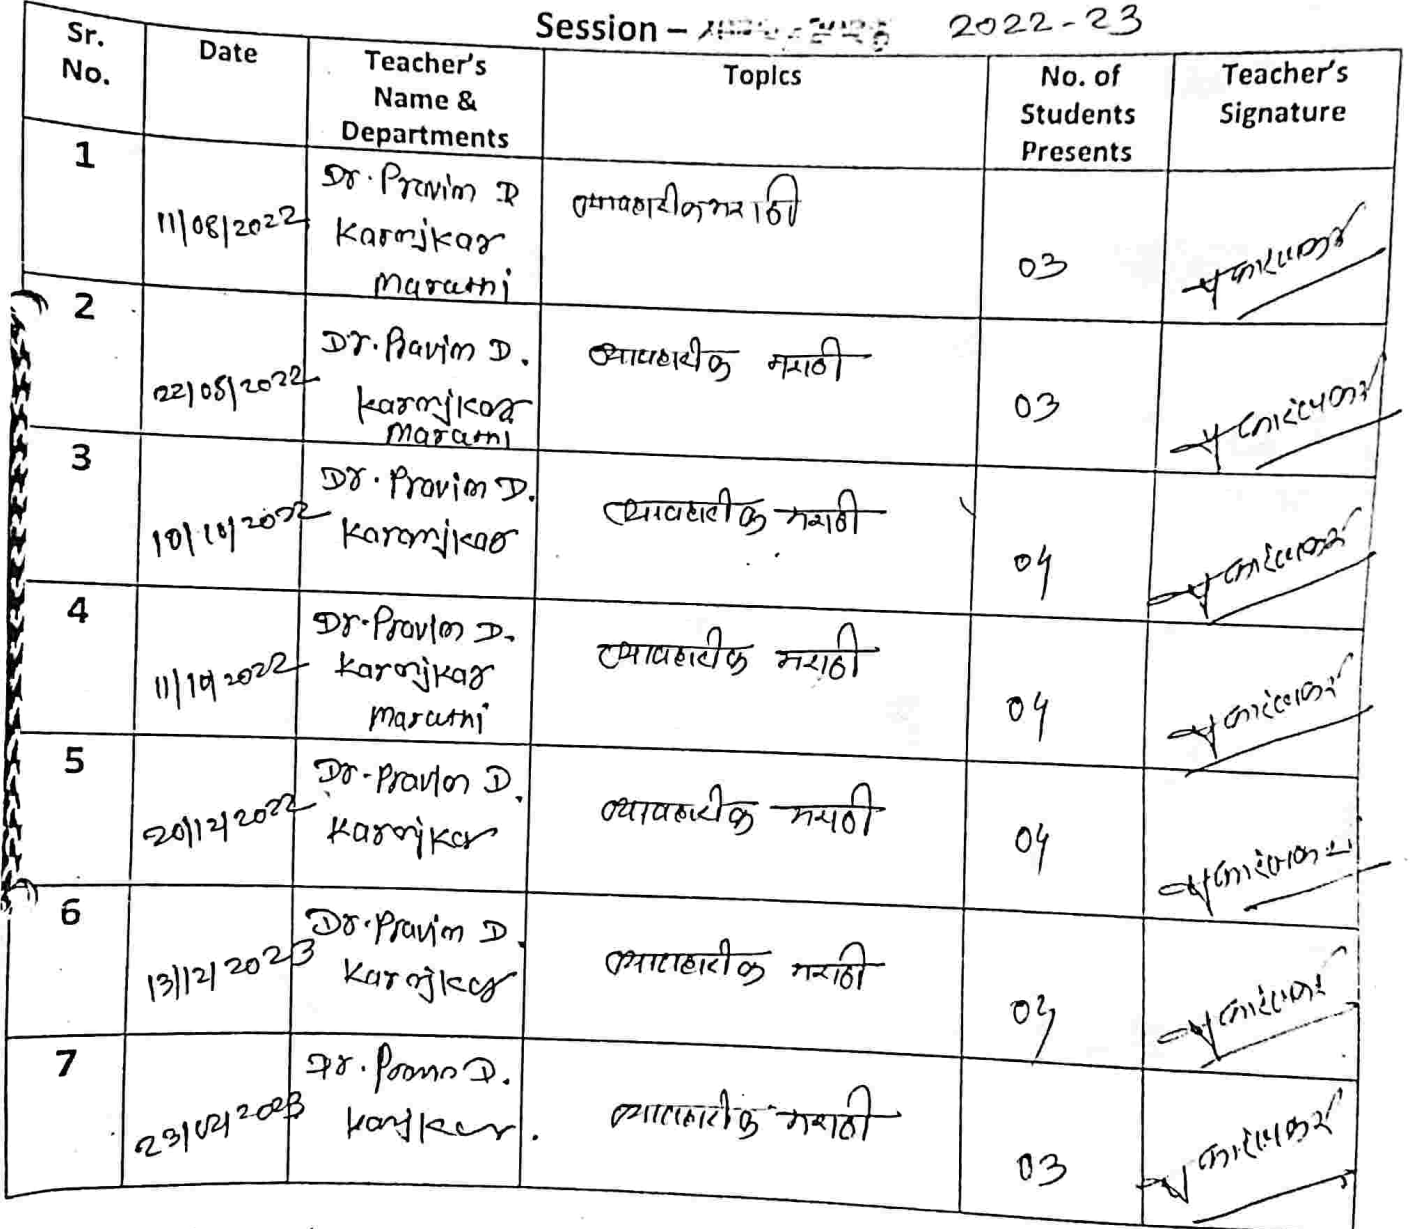 Session – 2022-23
Sr. No. | Date | Teacher's Name & Departments | Topics | No. of Students Presents | Teacher's Signature
1 | 11/08/2022 | Dr. Pravin D Karanjkar Marathi | व्यावहारीक मराठी | 03 | प्र कारंजकर
2 | 22/08/2022 | Dr. Pravin D. Karanjkar Marathi | व्यावहारीक मराठी | 03 | प्र कारंजकर
3 | 10/10/2022 | Dr. Pravin D. Karanjkar | व्यावहारीक मराठी | 04 | प्र कारंजकर
4 | 11/10/2022 | Dr. Pravin D. Karanjkar Marathi | व्यावहारीक मराठी | 04 | प्र कारंजकर
5 | 20/12/2022 | Dr. Pravin D. Karanjkar | व्यावहारीक मराठी | 04 | प्र कारंजकर
6 | 13/12/2023 | Dr. Pravin D. Karanjkar | व्यावहारीक मराठी | प्र कारंजकर
7 | 23/02/2023 | Dr. Pravin D. Karanjkar | व्यावहारीक मराठी | 03 | प्र कारंजकर